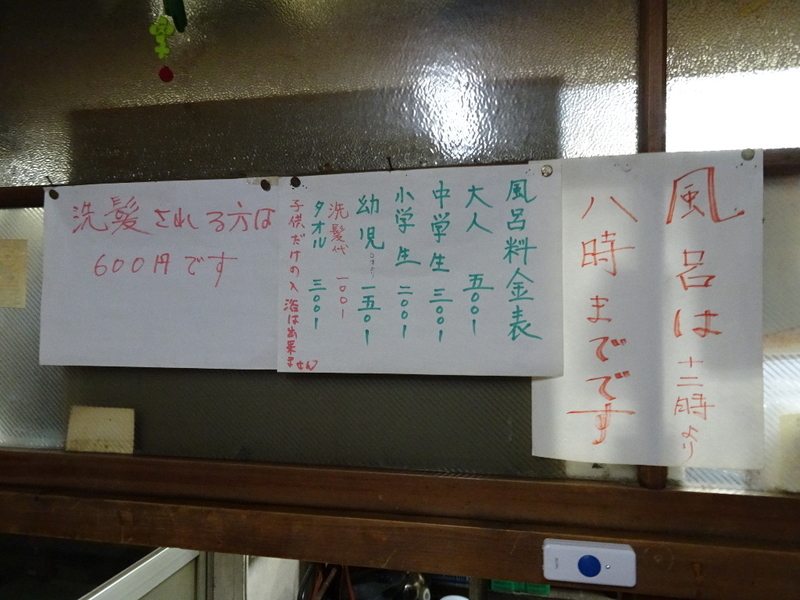 風呂は十二時より
八時までです
風呂料金表
大人 五〇〇ー
中学生 三〇〇ー
小学生 二〇〇ー
幼児 一五〇ー
洗髪代 一〇〇ー
タオル 三〇〇ー
子供だけの入浴は出来ません
洗髪される方は
600円です